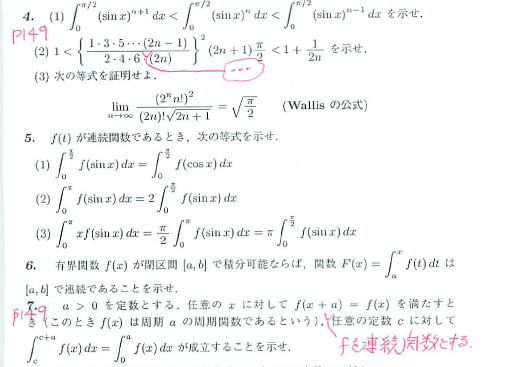 4. (1) ∫₀^{π/2} (sin x)^{n+1} dx < ∫₀^{π/2} (sin x)^n dx < ∫₀^{π/2} (sin x)^{n-1} dx を示せ.
p149
(2) 1 < { 1·3·5···(2n − 1) / 2·4·6·(2n) }² (2n + 1) π/2 < 1 + 1/2n を示せ.
...
(3) 次の等式を証明せよ.
lim_{n→∞} (2^n n!)² / (2n)!√(2n + 1) = √(π/2) (Wallis の公式)
5. f(t) が連続関数であるとき, 次の等式を示せ.
(1) ∫₀^{π/2} f(sin x) dx = ∫₀^{π/2} f(cos x) dx
(2) ∫₀^π f(sin x) dx = 2 ∫₀^{π/2} f(sin x) dx
(3) ∫₀^π xf(sin x) dx = π/2 ∫₀^π f(sin x) dx = π ∫₀^{π/2} f(sin x) dx
6. 有界関数 f(x) が閉区間 [a, b] で積分可能ならば, 関数 F(x) = ∫_a^x f(t) dt は
[a, b] で連続であることを示せ.
7. a > 0 を定数とする. 任意の x に対して f(x + a) = f(x) を満たすと
p149
き (このとき f(x) は周期 a の周期関数であるという), 任意の定数 c に対して
∫_c^{c+a} f(x) dx = ∫₀^a f(x) dx が成立することを示せ.
fを連続関数とする.